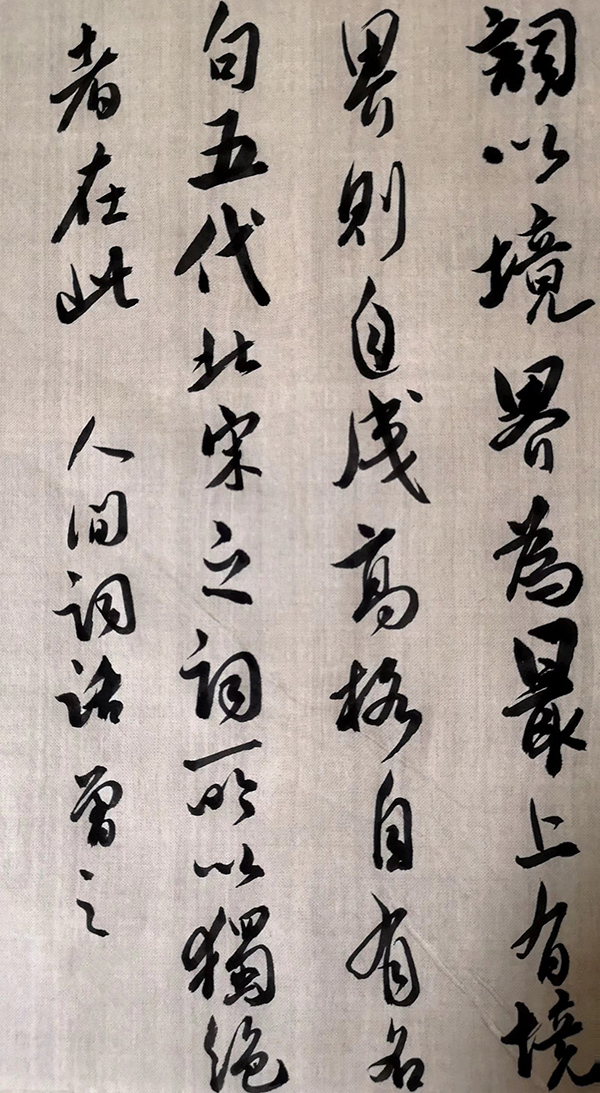 詞以境界為最上有境
界則自成高格自有名
句五代北宋之詞所以獨絶
者在此 人间词话 曾之